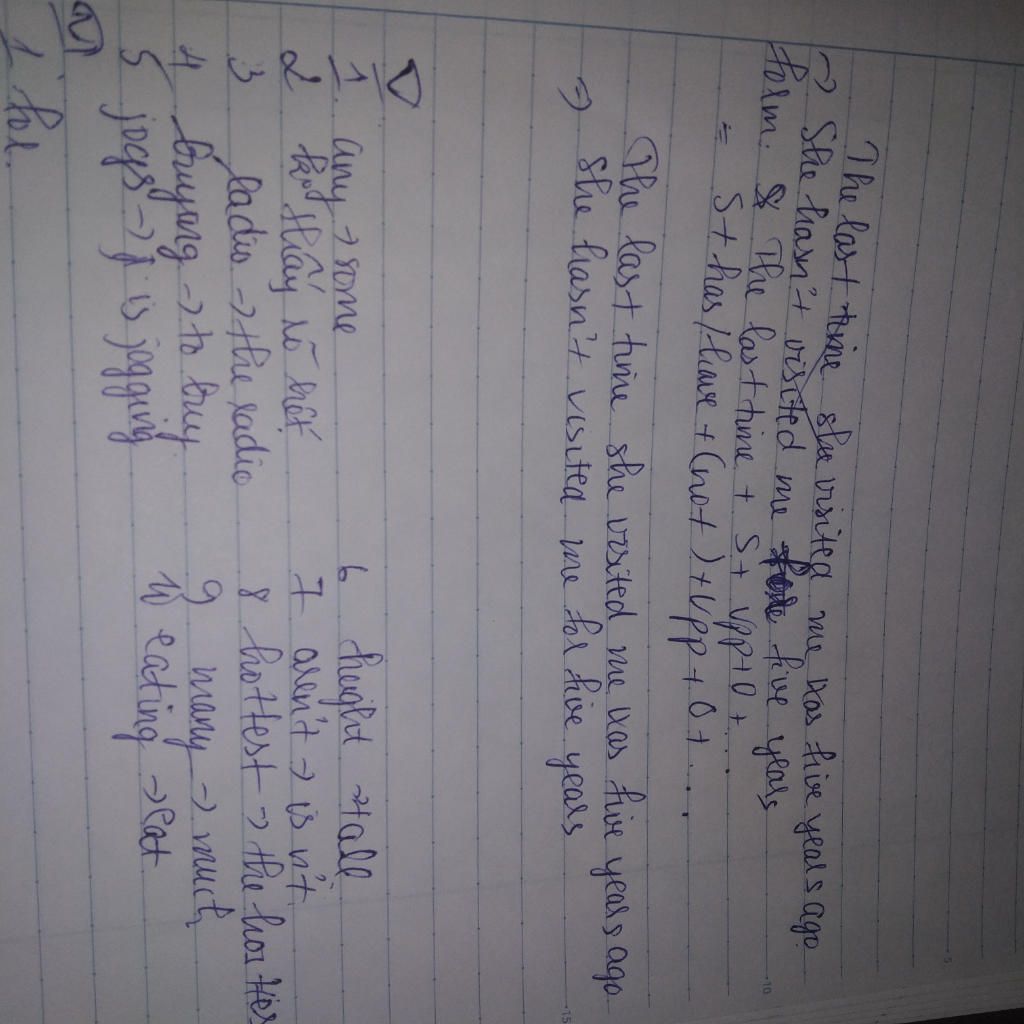 The last time she visited me was five years ago
=> She hasn't visited me five years
form. The last time + S + Vpp + O + ....
= S + has/have + (not) + Vpp + O + ....
The last time she visited me was five years ago
=> She hasn't visited me for five years
V
1. any → some
2 thấy
3 radio → the radio
4 buying → to buy
5 jogs → is jogging
6 height → tall
7 aren't → isn't
8 hottest → the hottes
9 many → much
10 eating → eat
VI
1. for.